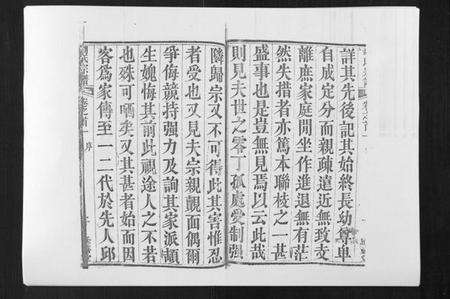 詳其先後記其始終長幼尊卑
自成定分而親疎遠近無致支
離庶家庭閒坐作進退無有茫
然失措者亦篤本聯枝之一甚
盛事也是豈無見焉以云此哉
則見夫世之零丁孤處受制强
隣歸宗又不可得此其害惟忍
者受也又見夫宗親覿面偶爾
爭侮競持强力及詢其家派頓
生媿悔其前此視途人之不若
也殊可哂矣又其甚者始而因
客爲家傳至一二代於先人邱
氏宗譜 卷之首 序